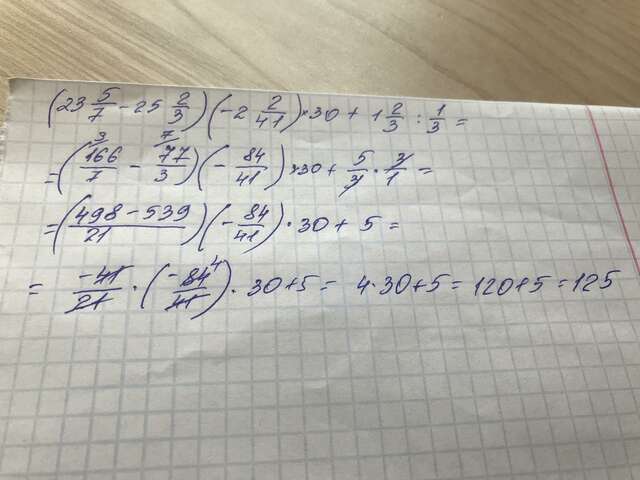 (23 5/7 - 25 2/3)(-2 2/41)×30 + 1 2/3 : 1/3 =
=(166/7 ³ - 77/3 ⁷)(-84/41)×30 + 5/3 · 3/1 =
=(498-539/21)(-84/41)·30 + 5 =
= -41/21 · (-84⁴/41) · 30+5 = 4·30+5 = 120+5 = 125